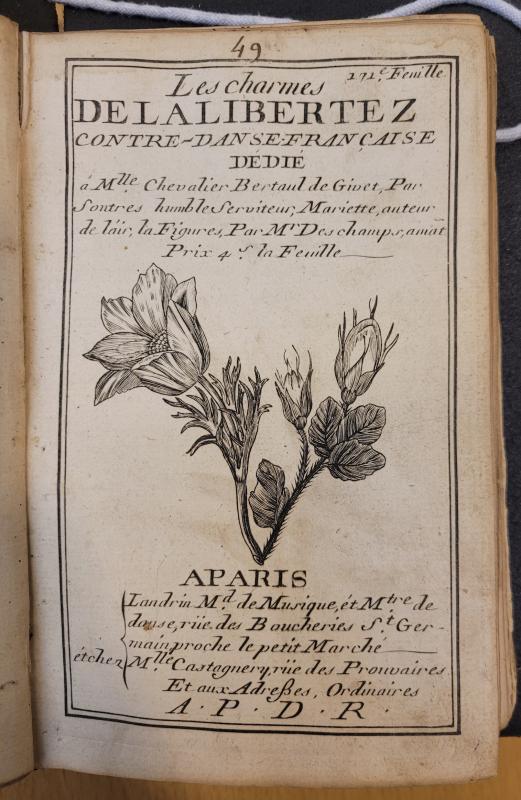 49
171.e Feuille
Les charmes
DE LA LIBERTEZ
CONTRE-DANSE-FRANÇAISE
DÉDIÉ
á Mlle Chevalier Bertaul de Givet, Par
Son tres humble Serviteur, Mariette, auteur
de láir, la Figures, Par Mr Deschamps, amat
Prix 4 s. la Feuille
A PARIS
Landrin Md. de Musique, ét Mtre de
danse, rüe des Boucheries St Ger-
main proche le petit Marche
ét chez Mlle Castagnery, rüe des Prouvaires
Et aux Adreßes, Ordinaires
A. P. D. R.